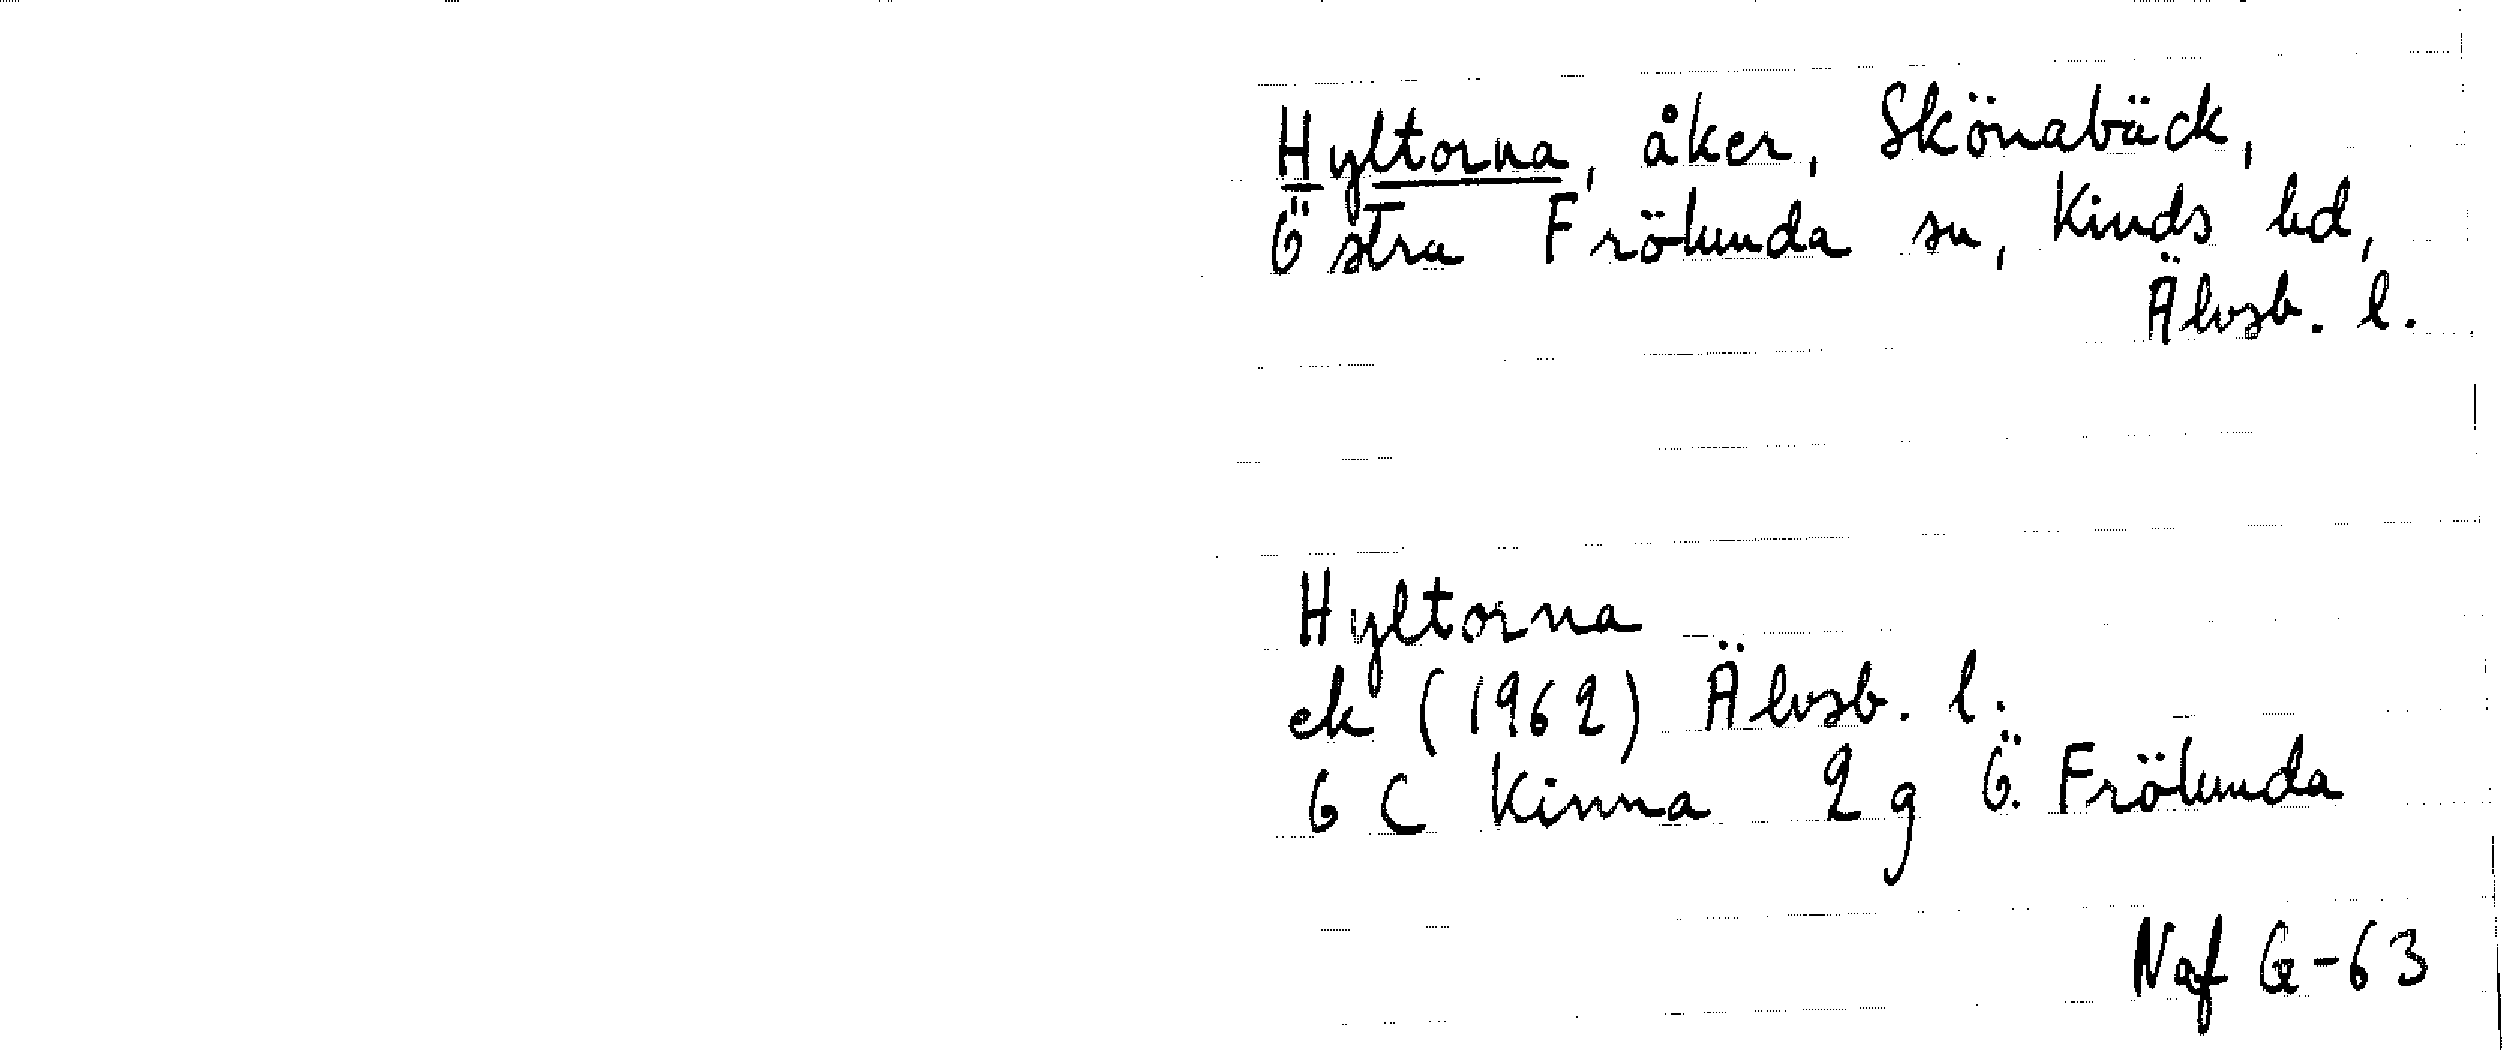 Hyltorna, åker, Skönabäck,
Östra Frölunda sn, Kinds hd,
Älvsb. l.
Hyltorna
ek (1962) Älvsb. l.
6 C Kinna 2 g Ö. Frölunda
Naf G-63